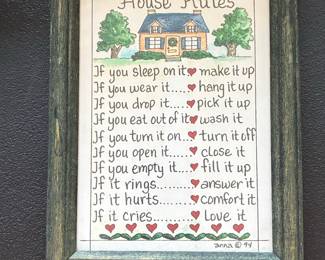 House Rules
If you sleep on it make it up
If you wear it.... hang it up
If you drop it.... pick it up
If you eat out of it wash it
If you turn it on... turn it off
If you open it..... close it
If you empty it.... fill it up
If it rings........ answer it
If it hurts........ comfort it
If it cries........ love it
anna © 94